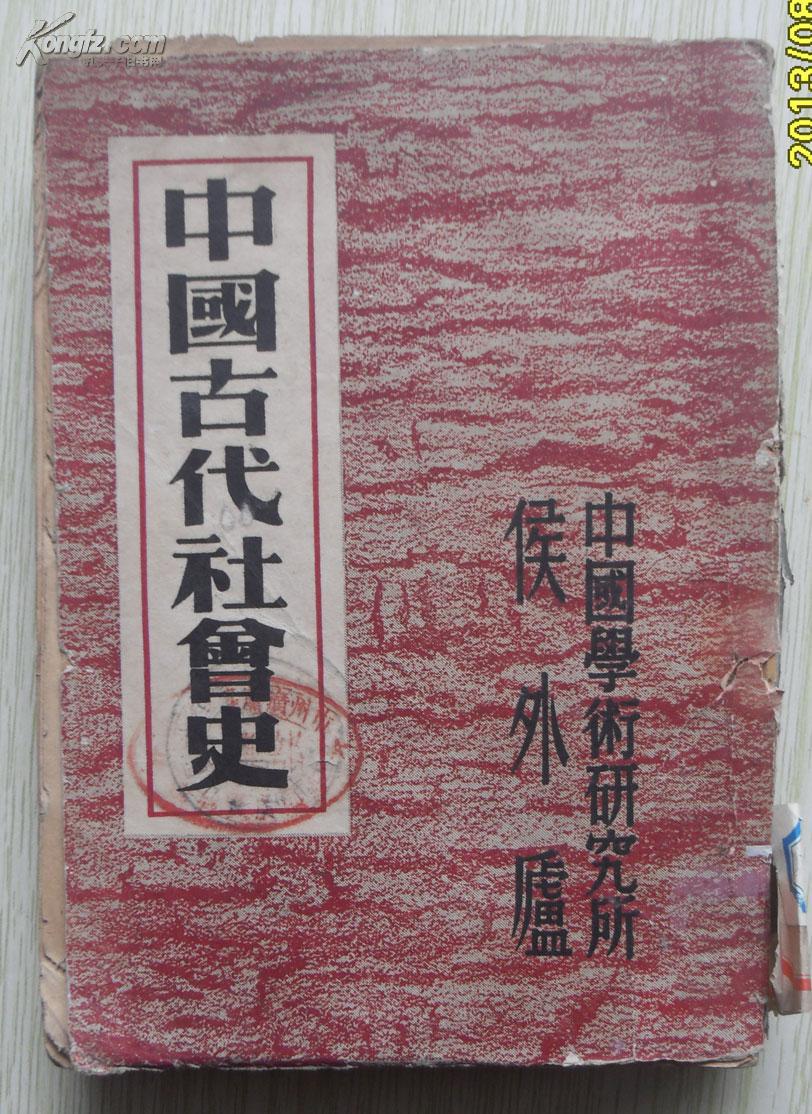 Kongfz.com
孔夫子旧书网
2013/08
中國古代社會史
中國學術研究所
侯外廬